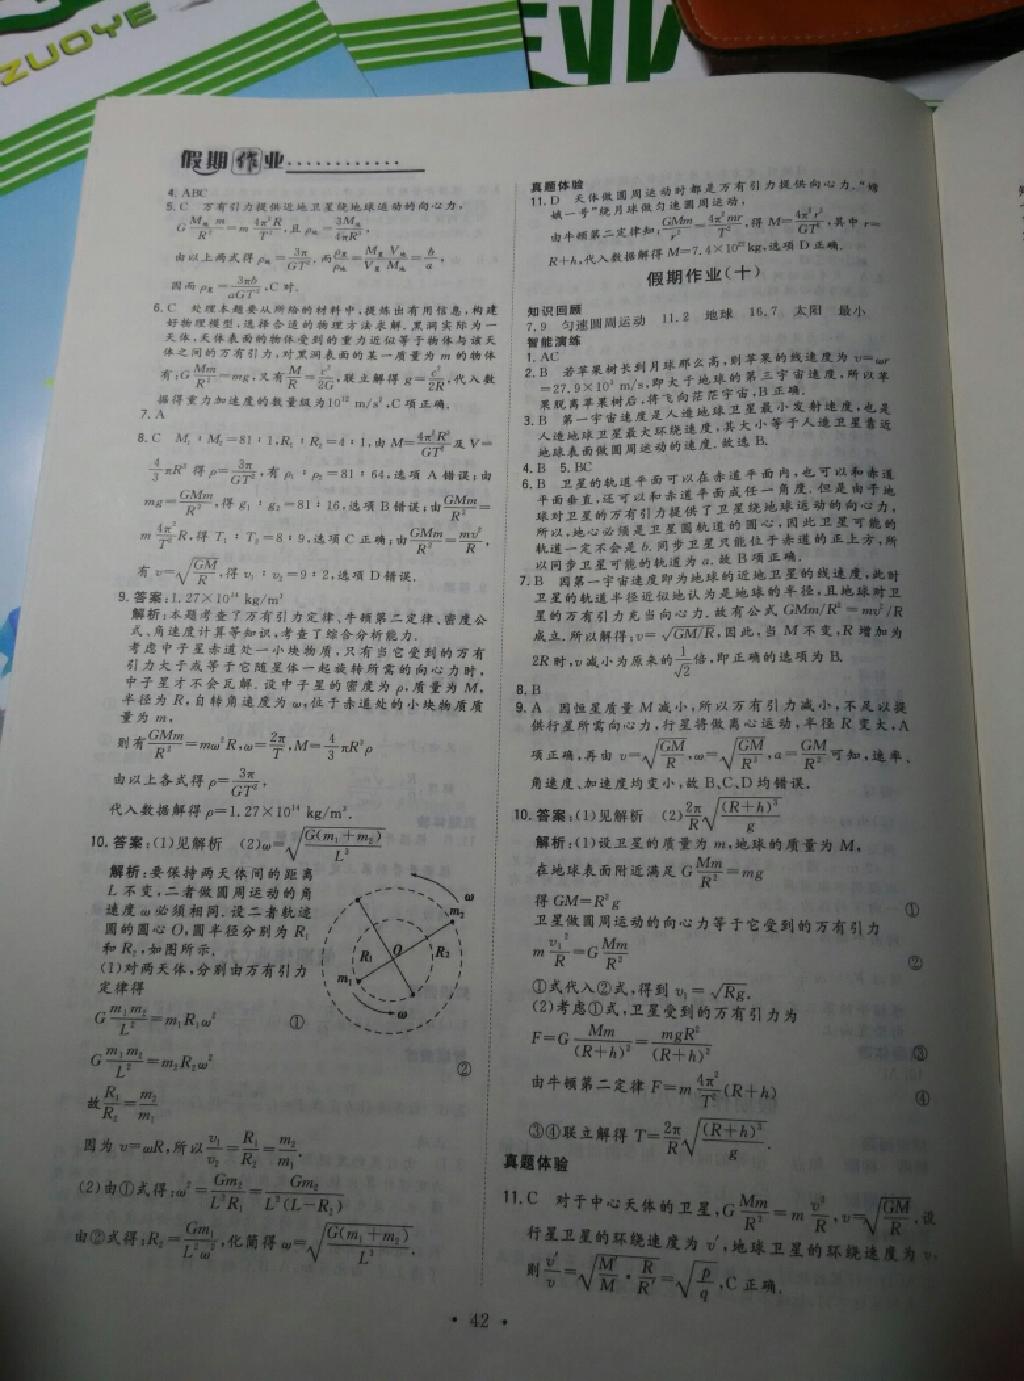 ZUOYE
业
假期作业
4. ABC
5. C 万有引力提供近地卫星绕地球运动的向心力,
G\frac{M_地 m}{R^2}=m\frac{4π^2R}{T^2},且ρ_地=\frac{3M_地}{4πR^3},
由以上两式得ρ_地=\frac{3π}{GT^2},而\frac{ρ_星}{ρ_地}=\frac{M_星 V_地}{V_星 M_地}=\frac{b}{a},
因而ρ_星=\frac{3πb}{aGT^2}.C 对.
6. C 处理本题要从所给的材料中,提炼出有用信息,构建
好物理模型,选择合适的物理方法求解.黑洞实际为一
天体,天体表面的物体受到的重力近似等于物体与该天
体之间的万有引力,对黑洞表面的某一质量为 m 的物体
有:G\frac{Mm}{R^2}=mg,又有\frac{M}{R}=\frac{c^2}{2G},联立解得 g=\frac{c^2}{2R},代入数
据得重力加速度的数量级为10^{12} m/s^2,C 项正确.
7. A
8. C M_1:M_2=81:1,R_1:R_2=4:1,由 M=\frac{4π^2R^3}{GT^2}及 V=
\frac{4}{3}πR^3 得ρ=\frac{3π}{GT^2},有ρ_1:ρ_2=81:64,选项 A 错误;由
mg=\frac{GMm}{R^2},得 g_1:g_2=81:16,选项 B 错误;由\frac{GMm}{R^2}=
m\frac{4π^2}{T^2}R,得 T_1:T_2=8:9,选项 C 正确;由\frac{GMm}{R^2}=\frac{mv^2}{R},
有 v=\sqrt{\frac{GM}{R}},得 v_1:v_2=9:2,选项 D 错误.
9. 答案:1.27×10^{14} kg/m^3
解析:本题考查了万有引力定律、牛顿第二定律、密度公
式、角速度计算等知识,考查了综合分析能力.
考虑中子星赤道处一小块物质,只有当它受到的万有
引力大于或等于它随星体一起旋转所需的向心力时,
中子星才不会瓦解.设中子星的密度为ρ,质量为 M,
半径为 R,自转角速度为ω,位于赤道处的小块物质质
量为 m,
则有\frac{GMm}{R^2}=mω^2R,ω=\frac{2π}{T},M=\frac{4}{3}πR^3ρ
由以上各式得ρ=\frac{3π}{GT^2},
代入数据解得ρ=1.27×10^{14} kg/m^3.
10. 答案:(1)见解析 (2)ω=\sqrt{\frac{G(m_1+m_2)}{L^3}}
解析:要保持两天体间的距离
L 不变,二者做圆周运动的角
速度ω必须相同.设二者轨迹
圆的圆心 O,圆半径分别为 R_1
和 R_2,如图所示.
(1)对两天体,分别由万有引力
定律得
ω
m_2
R_1 O R_2
m_1
ω
G\frac{m_1m_2}{L^2}=m_1R_1ω^2 ①
G\frac{m_1m_2}{L^2}=m_2R_2ω^2 ②
故\frac{R_1}{R_2}=\frac{m_2}{m_1}
因为 v=ωR,所以\frac{v_1}{v_2}=\frac{R_1}{R_2}=\frac{m_2}{m_1}.
(2)由①式得:ω^2=\frac{Gm_2}{L^2R_1}=\frac{Gm_2}{L^2(L-R_2)}
由②式得:R_2=\frac{Gm_1}{L^2ω^2},化简得ω=\sqrt{\frac{G(m_1+m_2)}{L^3}}.
真题体验
11. D 天体做圆周运动时都是万有引力提供向心力.“嫦
娥一号”绕月球做匀速圆周运动,
由牛顿第二定律知:\frac{GMm}{r^2}=\frac{4π^2mr}{T^2},得 M=\frac{4π^2r^3}{GT^2},其中 r=
R+h,代入数据解得 M=7.4×10^{22}kg,选项 D 正确.
假期作业(十)
知识回顾
7.9 匀速圆周运动 11.2 地球 16.7 太阳 最小
智能演练
1. AC
2. B 若苹果树长到月球那么高,则苹果的线速度为 v=ωr
=27.9×10^5 m/s,即大于地球的第三宇宙速度,所以苹
果脱离苹果树后,将飞向茫茫宇宙,B 正确.
3. B 第一宇宙速度是人造地球卫星最小发射速度,也是
人造地球卫星最大环绕速度,其大小等于人造卫星靠近
地球表面做圆周运动的速度.故选 B.
4. B 5. BC
6. B 卫星的轨道平面可以在赤道平面内,也可以和赤道
平面垂直,还可以和赤道平面成任一角度.但是由于地
球对卫星的万有引力提供了卫星绕地球运动的向心力,
所以,地心必须是卫星圆轨道的圆心,因此卫星可能的
轨道一定不会是 b.同步卫星只能位于赤道的正上方,所
以同步卫星可能的轨道为 a.故 B 项正确.
7. B 因第一宇宙速度即为地球的近地卫星的线速度,此时
卫星的轨道半径近似地认为是地球的半径,且地球对卫
星的万有引力充当向心力.故有公式 GMm/R^2=mv^2/R
成立.所以解得:v=\sqrt{GM/R},因此,当 M 不变,R 增加为
2R 时,v 减小为原来的\frac{1}{\sqrt{2}}倍,即正确的选项为 B.
8. B
9. A 因恒星质量 M 减小,所以万有引力减小,不足以提
供行星所需向心力,行星将做离心运动,半径 R 变大,A
项正确,再由 v=\sqrt{\frac{GM}{R}},ω=\sqrt{\frac{GM}{R^3}},a=\frac{GM}{R^2}可知,速率、
角速度、加速度均变小,故 B、C、D 均错误.
10. 答案:(1)见解析 (2)\frac{2π}{R}\sqrt{\frac{(R+h)^3}{g}}
解析:(1)设卫星的质量为 m,地球的质量为 M,
在地球表面附近满足 G\frac{Mm}{R^2}=mg
得 GM=R^2g ①
卫星做圆周运动的向心力等于它受到的万有引力
m\frac{v_1^2}{R}=G\frac{Mm}{R^2} ②
①式代入②式,得到 v_1=\sqrt{Rg}.
(2)考虑①式,卫星受到的万有引力为
F=G\frac{Mm}{(R+h)^2}=\frac{mgR^2}{(R+h)^2} ③
由牛顿第二定律 F=m\frac{4π^2}{T^2}(R+h) ④
③④联立解得 T=\frac{2π}{R}\sqrt{\frac{(R+h)^3}{g}}.
真题体验
11. C 对于中心天体的卫星,G\frac{Mm}{R^2}=m\frac{v^2}{R},v=\sqrt{\frac{GM}{R}},设
行星卫星的环绕速度为 v′,地球卫星的环绕速度为 v,
则\frac{v′}{v}=\sqrt{\frac{M′}{M}·\frac{R}{R′}}=\sqrt{\frac{p}{q}},C 正确.
• 42 •